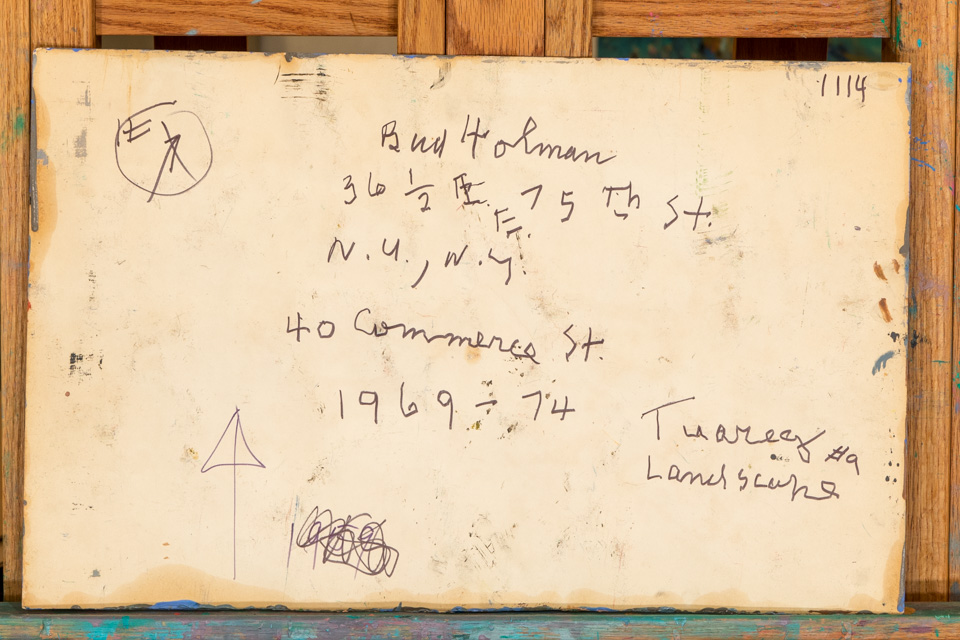 1114
Bud Holman
36 ½ E. 75 Th St.
E.
N.Y., N.Y.
40 Commerce St.
1969 ÷ 74
Tuareg #9
Landscape